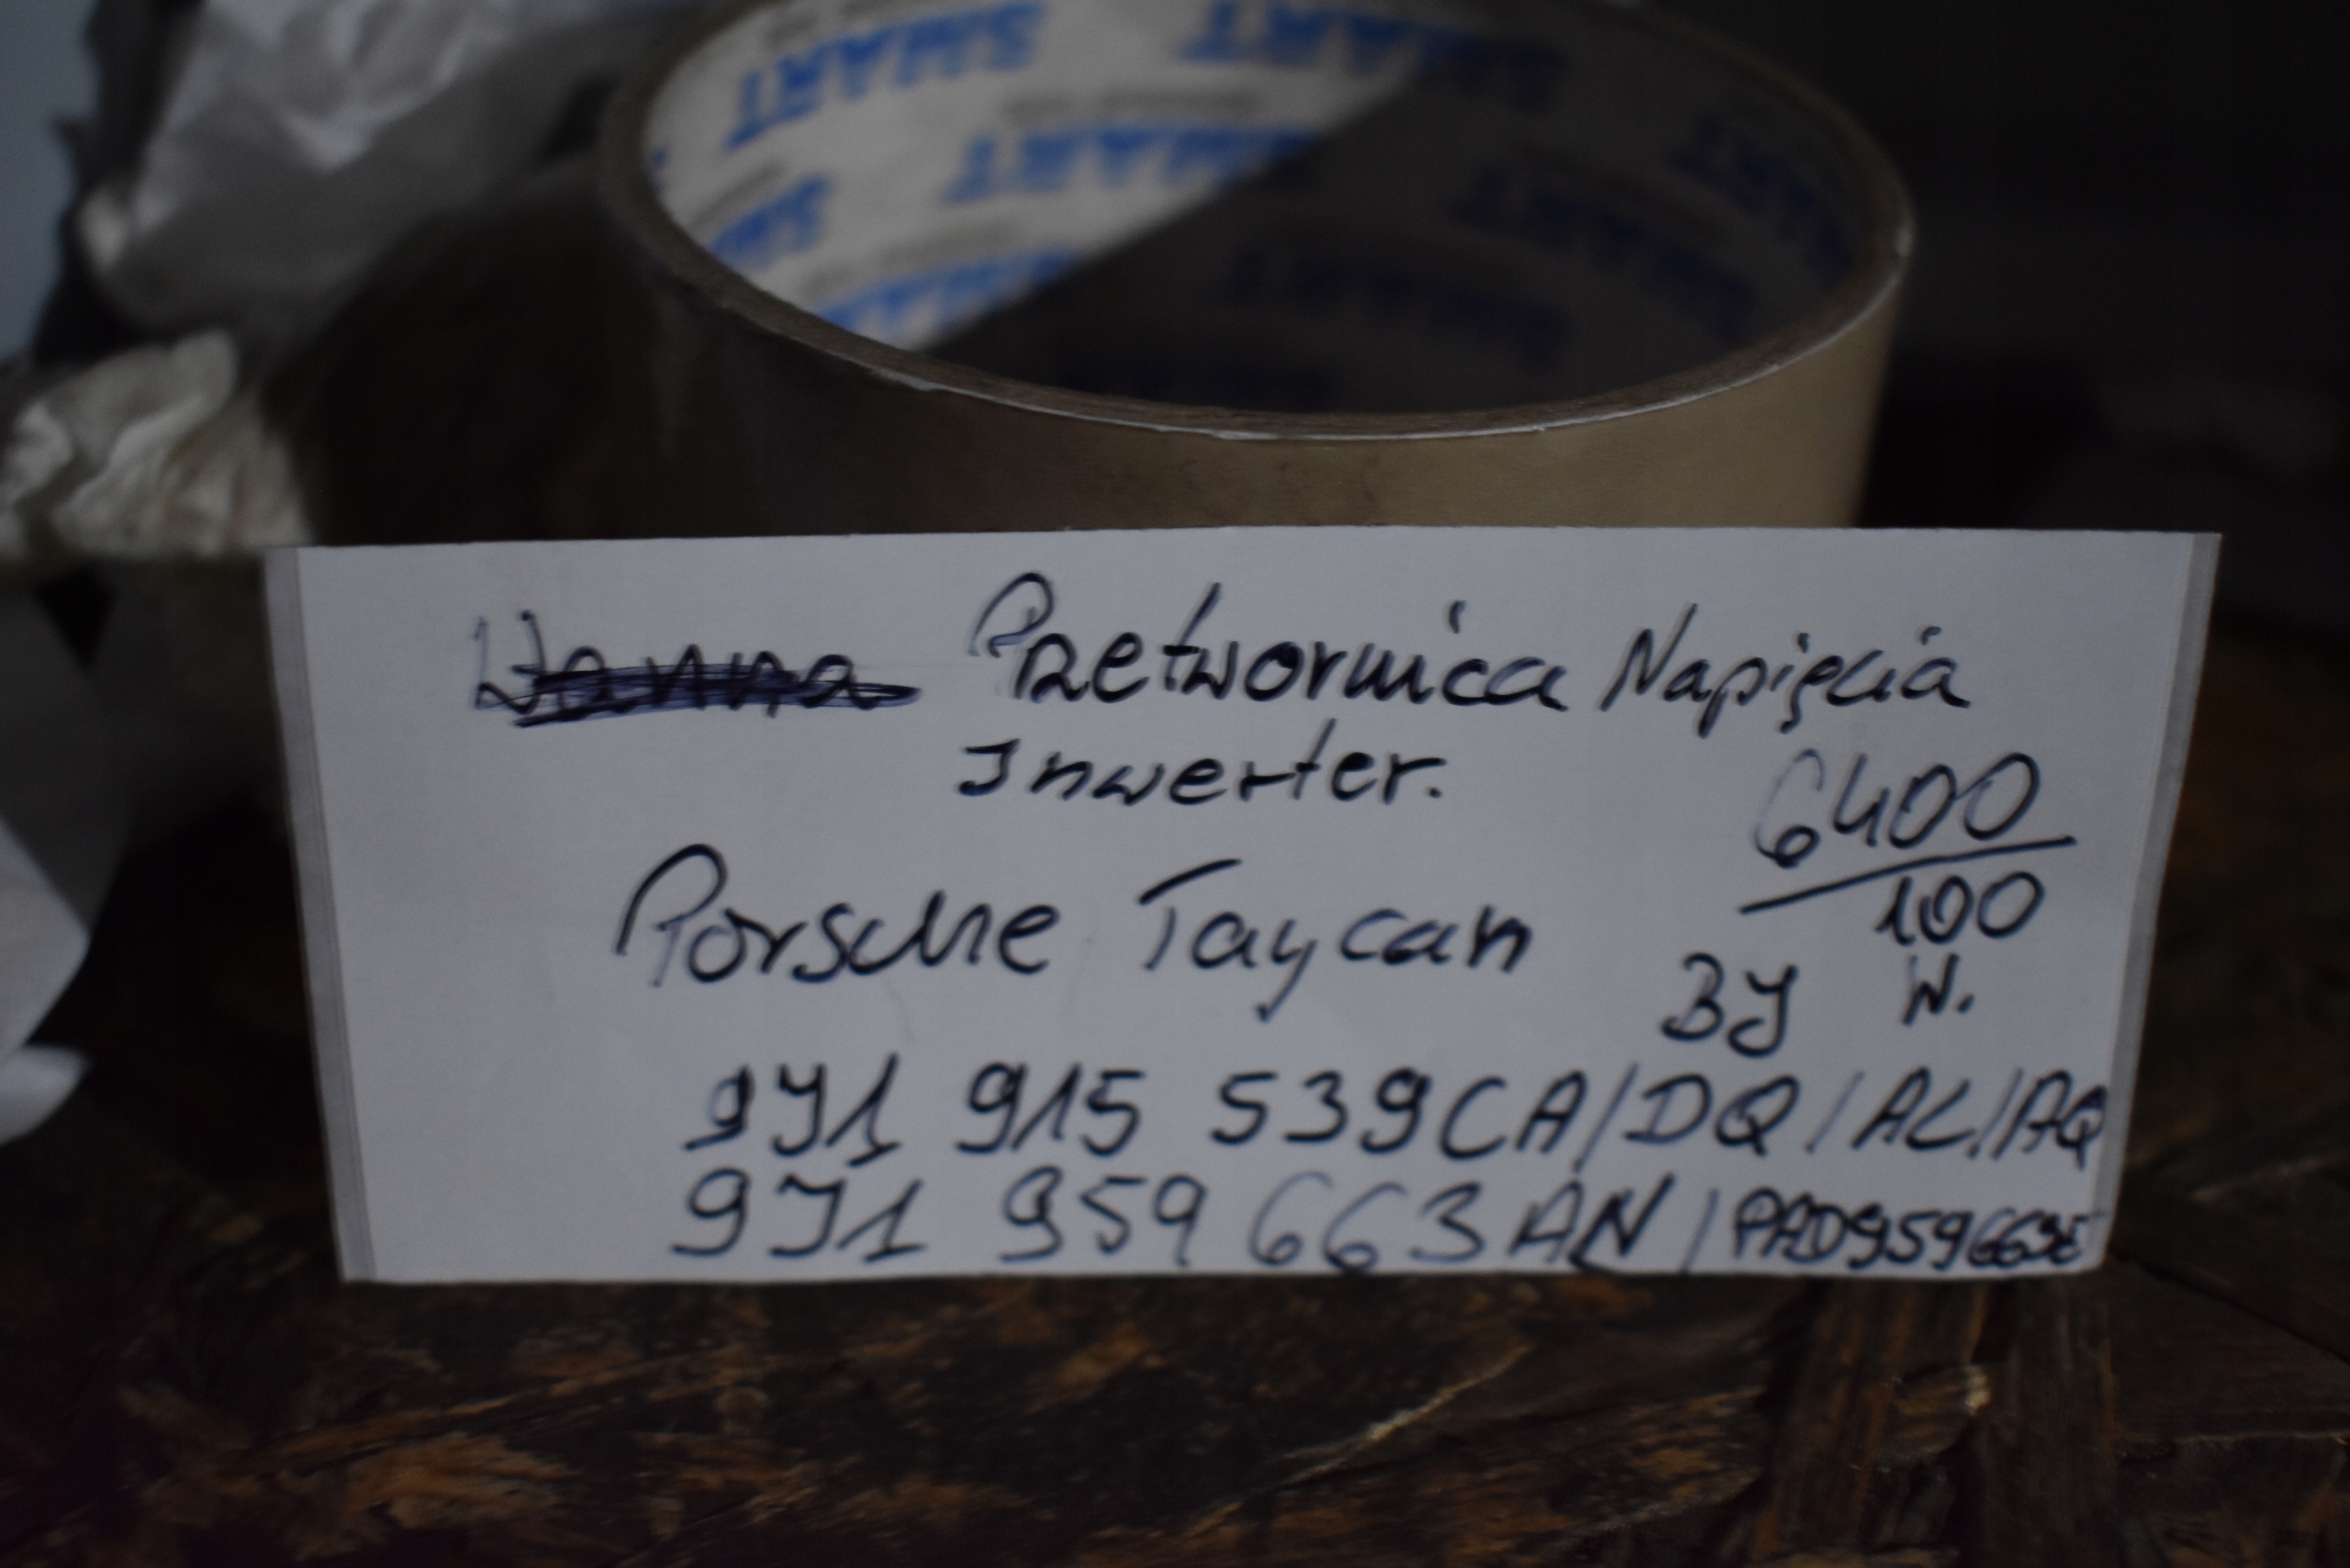 SMART SMART
SMART SMART
Wanna Przetwornica Napięcia
Inwerter.
6400
Porsche Taycan
100
BJ W.
9J1 915 539CA/DQ/AC/AQ
9J1 959 663AN/PAD959663E